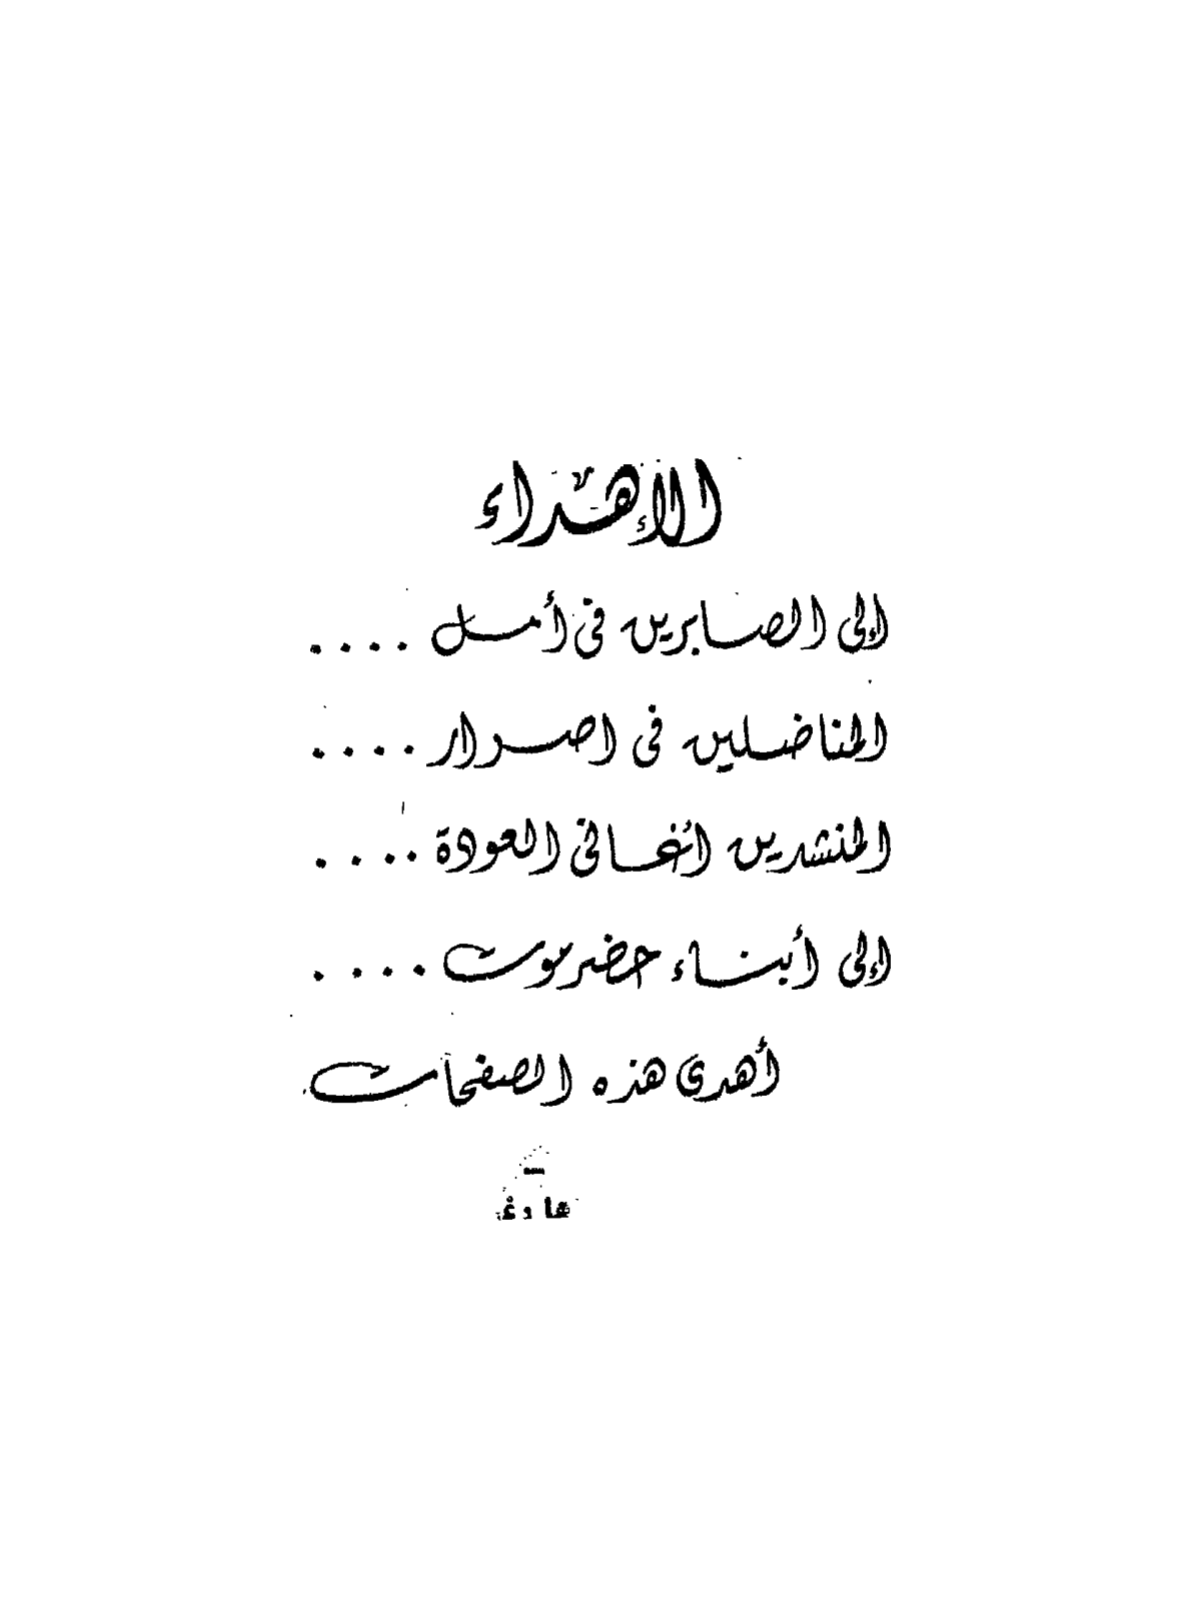 الإهداء
إلى الصابرين فى أمل ....
المناضلين فى اصرار ....
المنشدين أغانى العودة ....
إلى أبناء حضرموت ....
أهدى هذه الصفحات